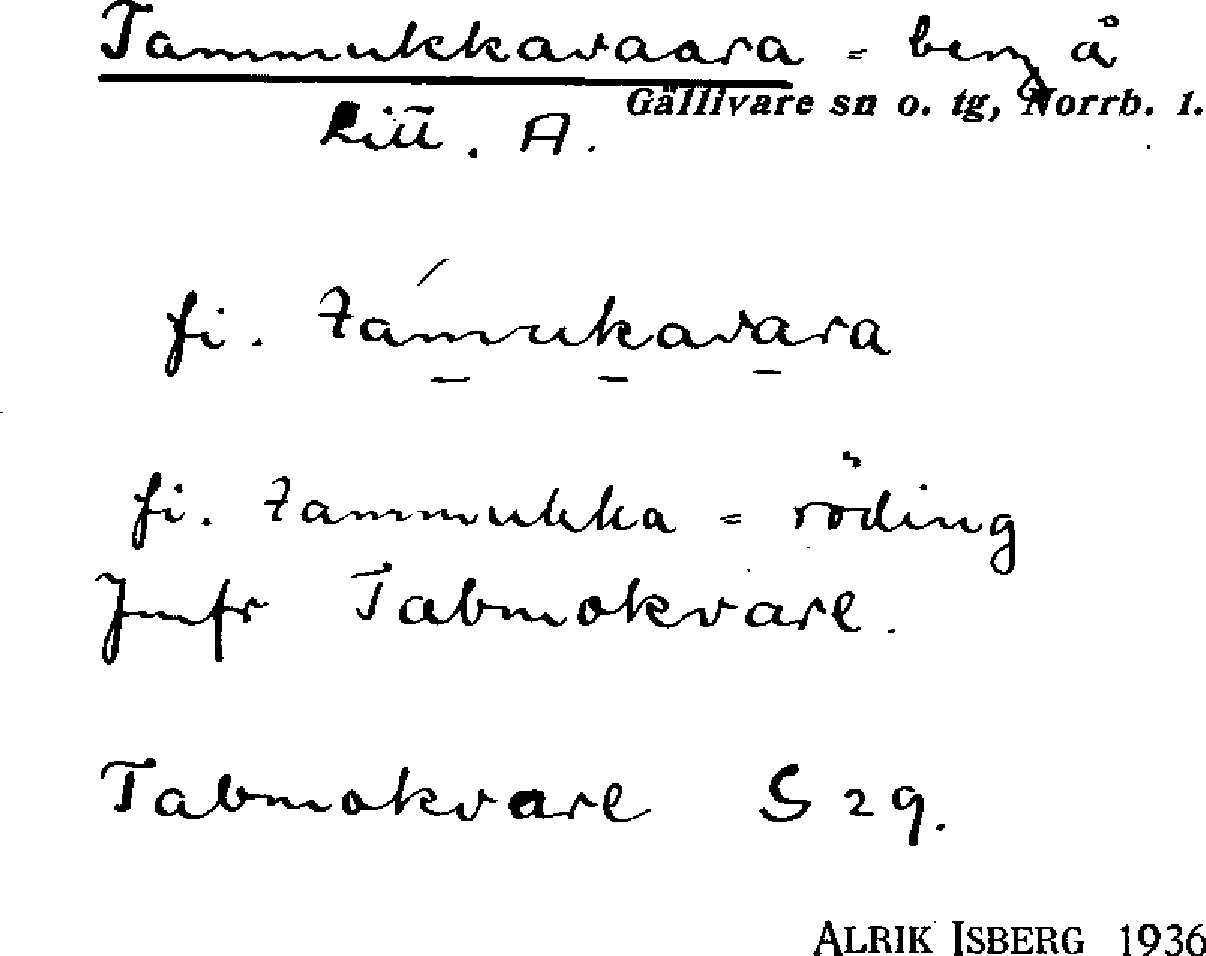 Tammukkavaara = berg å
Gällivare sn o. tg, Norrb. l.
Litt. A.
fi. támukavara
fi. tammukka = röding
Jmfr Tabmokvare.
Tabmokvare S 29.
ALRIK ISBERG 1936